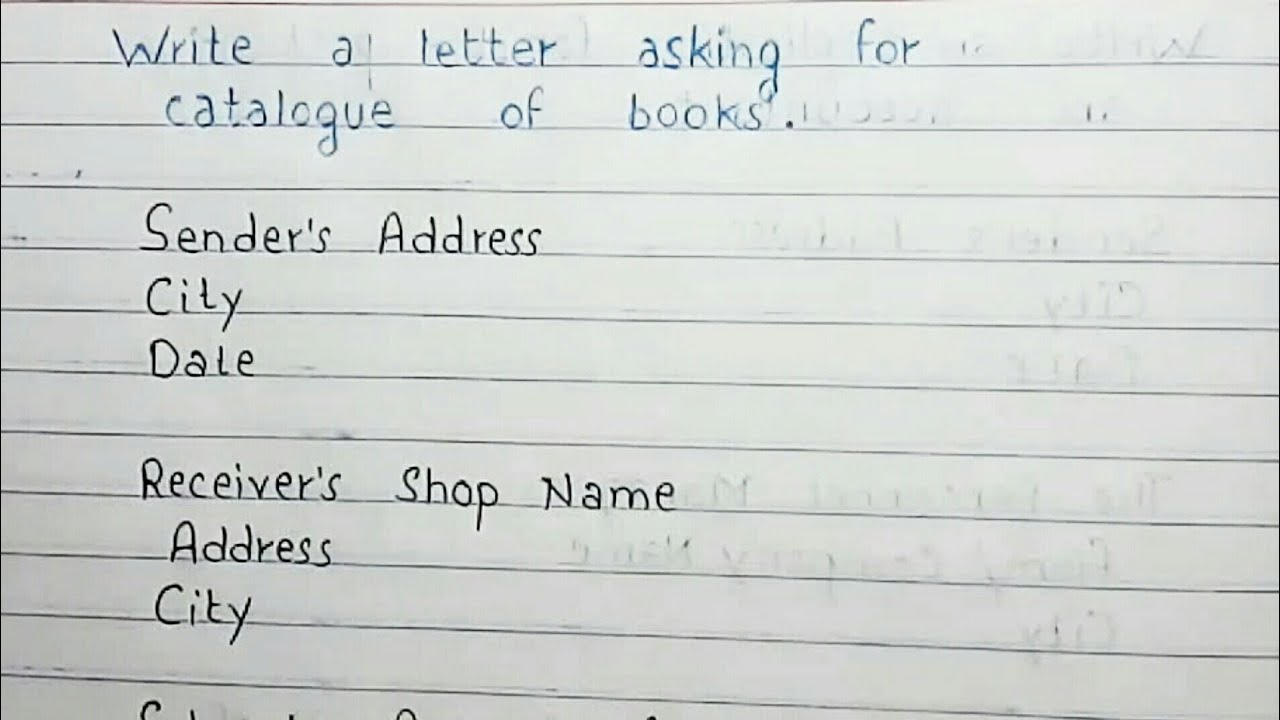 Write a letter asking for
catalogue of books.
Sender's Address
City
Date
Receiver's Shop Name
Address
City